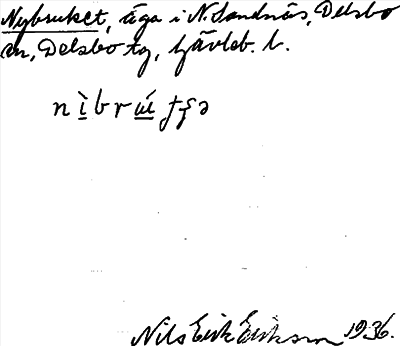 Nybruket, äga i N. Sandnäs, Delsbo
sn, Delsbo tg, Gävleb. l.
Nils Erik Erikson 1936.